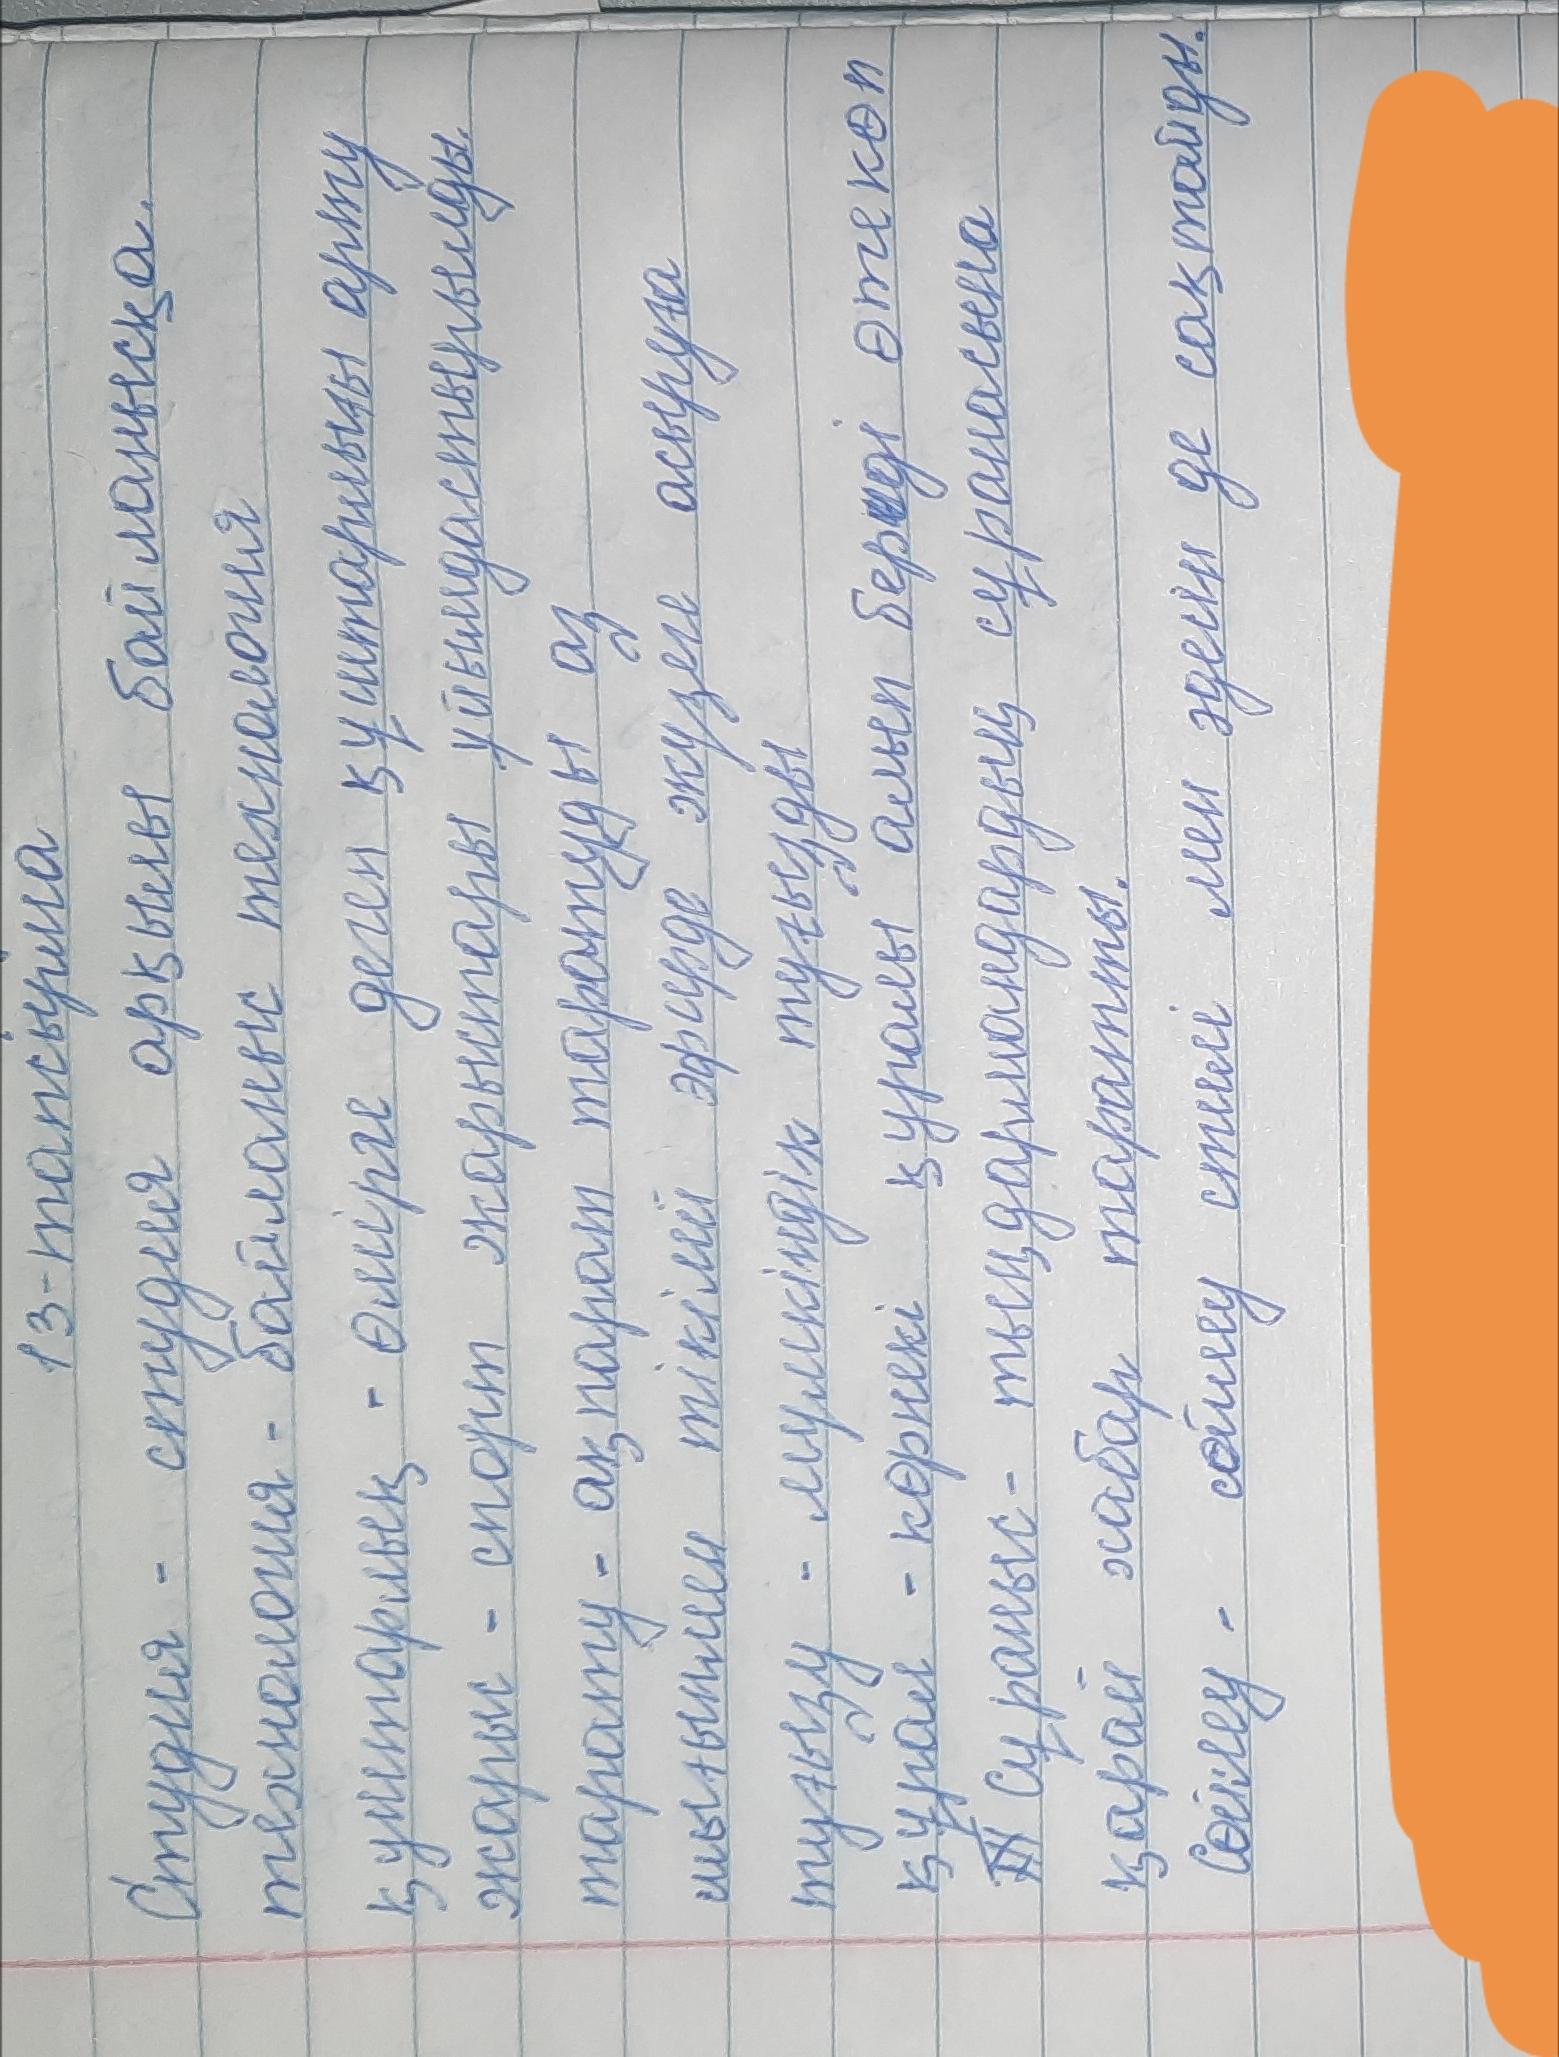 13-тапсырма
Студия - студия арқылы байланысқа.
технология - байланыс технология
құштарлық - өмірге деген құштарлығы арту
жарыс - спорт жарыстары ұйымдастырылды.
тарату - ақпарат таратуды аз
шығынмен тікелей эфирде жүзеге асыруға
туғызу - мүмкіндік туғызды
құрал - көрнекі құралы алып берді өте көп
Сұраныс - тыңдармандардың сұранасына
қарай хабар таратты.
Сөйлеу - сөйлеу стилі мен әдепін де сақтайды.